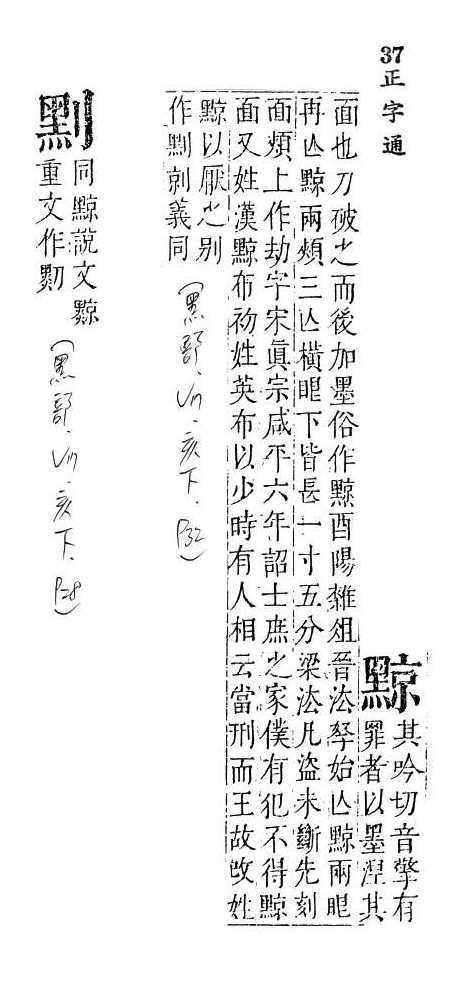 37正字通
黥
其吟切音擎有
罪者以墨湼其
面也刀破之而後加墨俗作黥酉陽雜俎晉法孥始亾黥兩眼
再亾黥兩頰三亾橫眼下皆長一寸五分梁法凡盜未斷先刻
面頰上作劫字宋眞宗咸平六年詔士庶之家僕有犯不得黥
面又姓漢黥布初姓英布以少時有人相云當刑而王故改姓
黥以厭之别
作剠義同
(黑部. Vn. 亥下. P32)
同黥說文黥
重文作
(黑部. Vn. 亥下. P28)